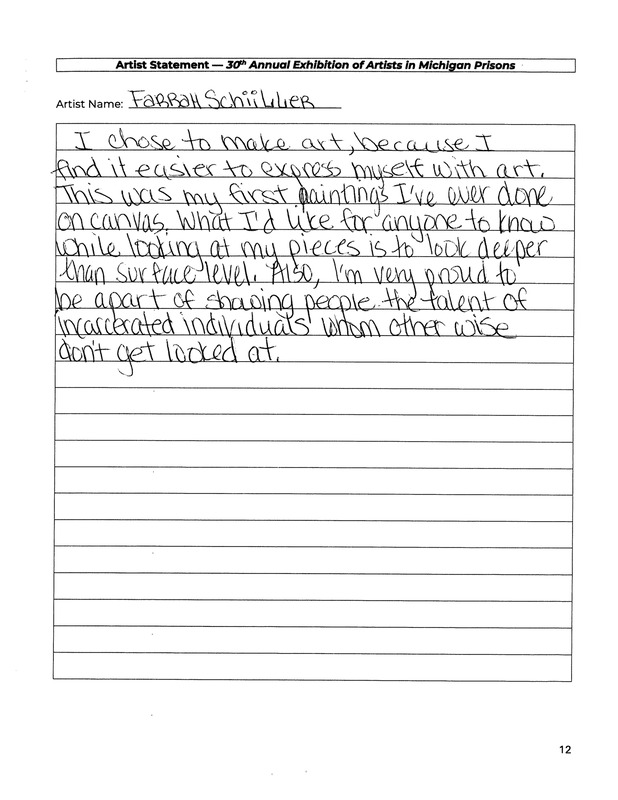 Artist Statement — 30th Annual Exhibition of Artists in Michigan Prisons
Artist Name: FARRAH Schiiller
I chose to make art, because I
find it easier to express myself with art.
This was my first paintings I've ever done
on canvas. What I'd like for anyone to know
while looking at my pieces is to look deeper
than surface level. Also, I'm very proud to
be apart of showing people the talent of
incarcerated individuals whom other wise
don't get looked at.
12